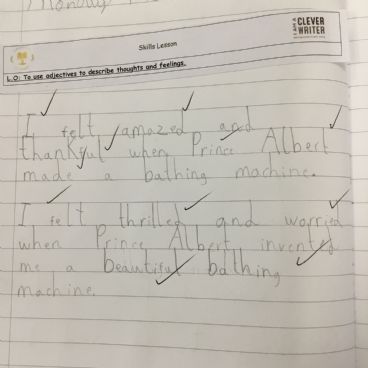 Monday
Skills Lesson
I AM A
CLEVER
WRITER
L.O: To use adjectives to describe thoughts and feelings.
I felt amazed and
thankful when Prince Albert
made a bathing machine.
I felt thrilled and worried
when Prince Albert invented
me a beautiful bathing
machine.